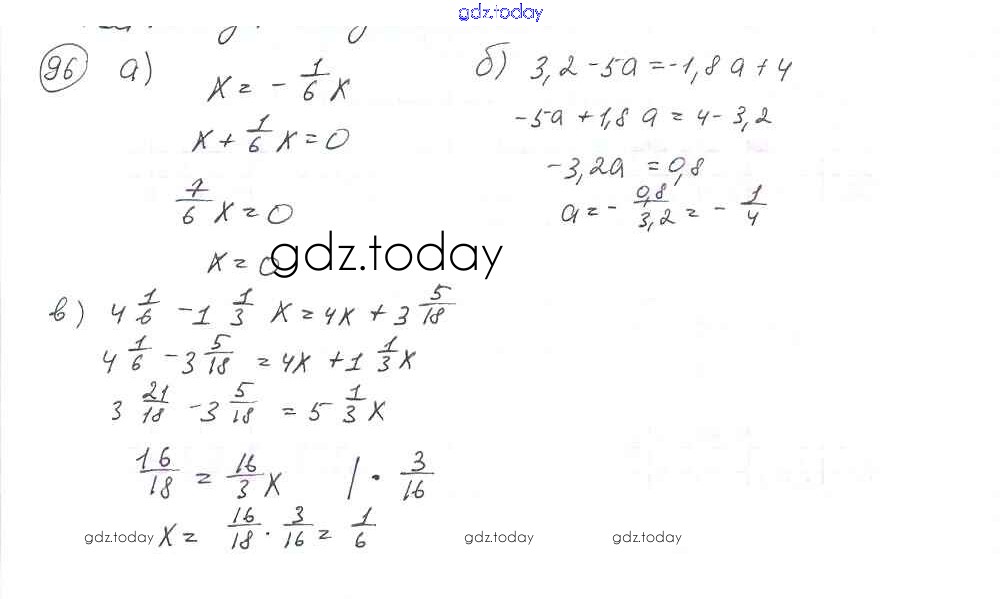 gdz.today
96 а) x = - 1/6 x
x + 1/6 x = 0
7/6 x = 0
x = 0
б) 3,2 - 5a = -1,8a + 4
-5a + 1,8a = 4 - 3,2
-3,2a = 0,8
a = - 0,8/3,2 = - 1/4
gdz.today
в) 4 1/6 - 1 1/3 x = 4x + 3 5/18
4 1/6 - 3 5/18 = 4x + 1 1/3 x
3 21/18 - 3 5/18 = 5 1/3 x
16/18 = 16/3 x | · 3/16
x = 16/18 · 3/16 = 1/6
gdz.today gdz.today gdz.today